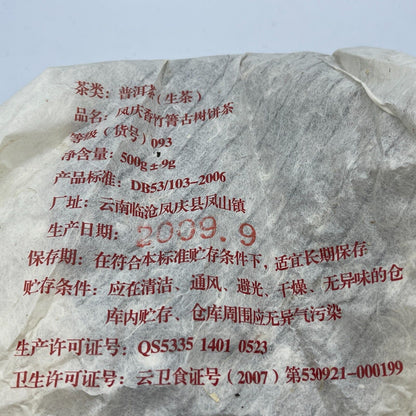 茶类：普洱茶（生茶）
品名：凤庆香竹箐古树饼茶
等级（货号）093
净含量：500g±9g
产品标准：DB53/103-2006
厂址：云南临沧凤庆县凤山镇
生产日期：2009.9
保存期：在符合本标准贮存条件下，适宜长期保存
贮存条件：应在清洁、通风、避光、干燥、无异味的仓
库内贮存、仓库周围应无异气污染
生产许可证号：QS5335 1401 0523
卫生许可证号：云卫食证号（2007）第530921-000199